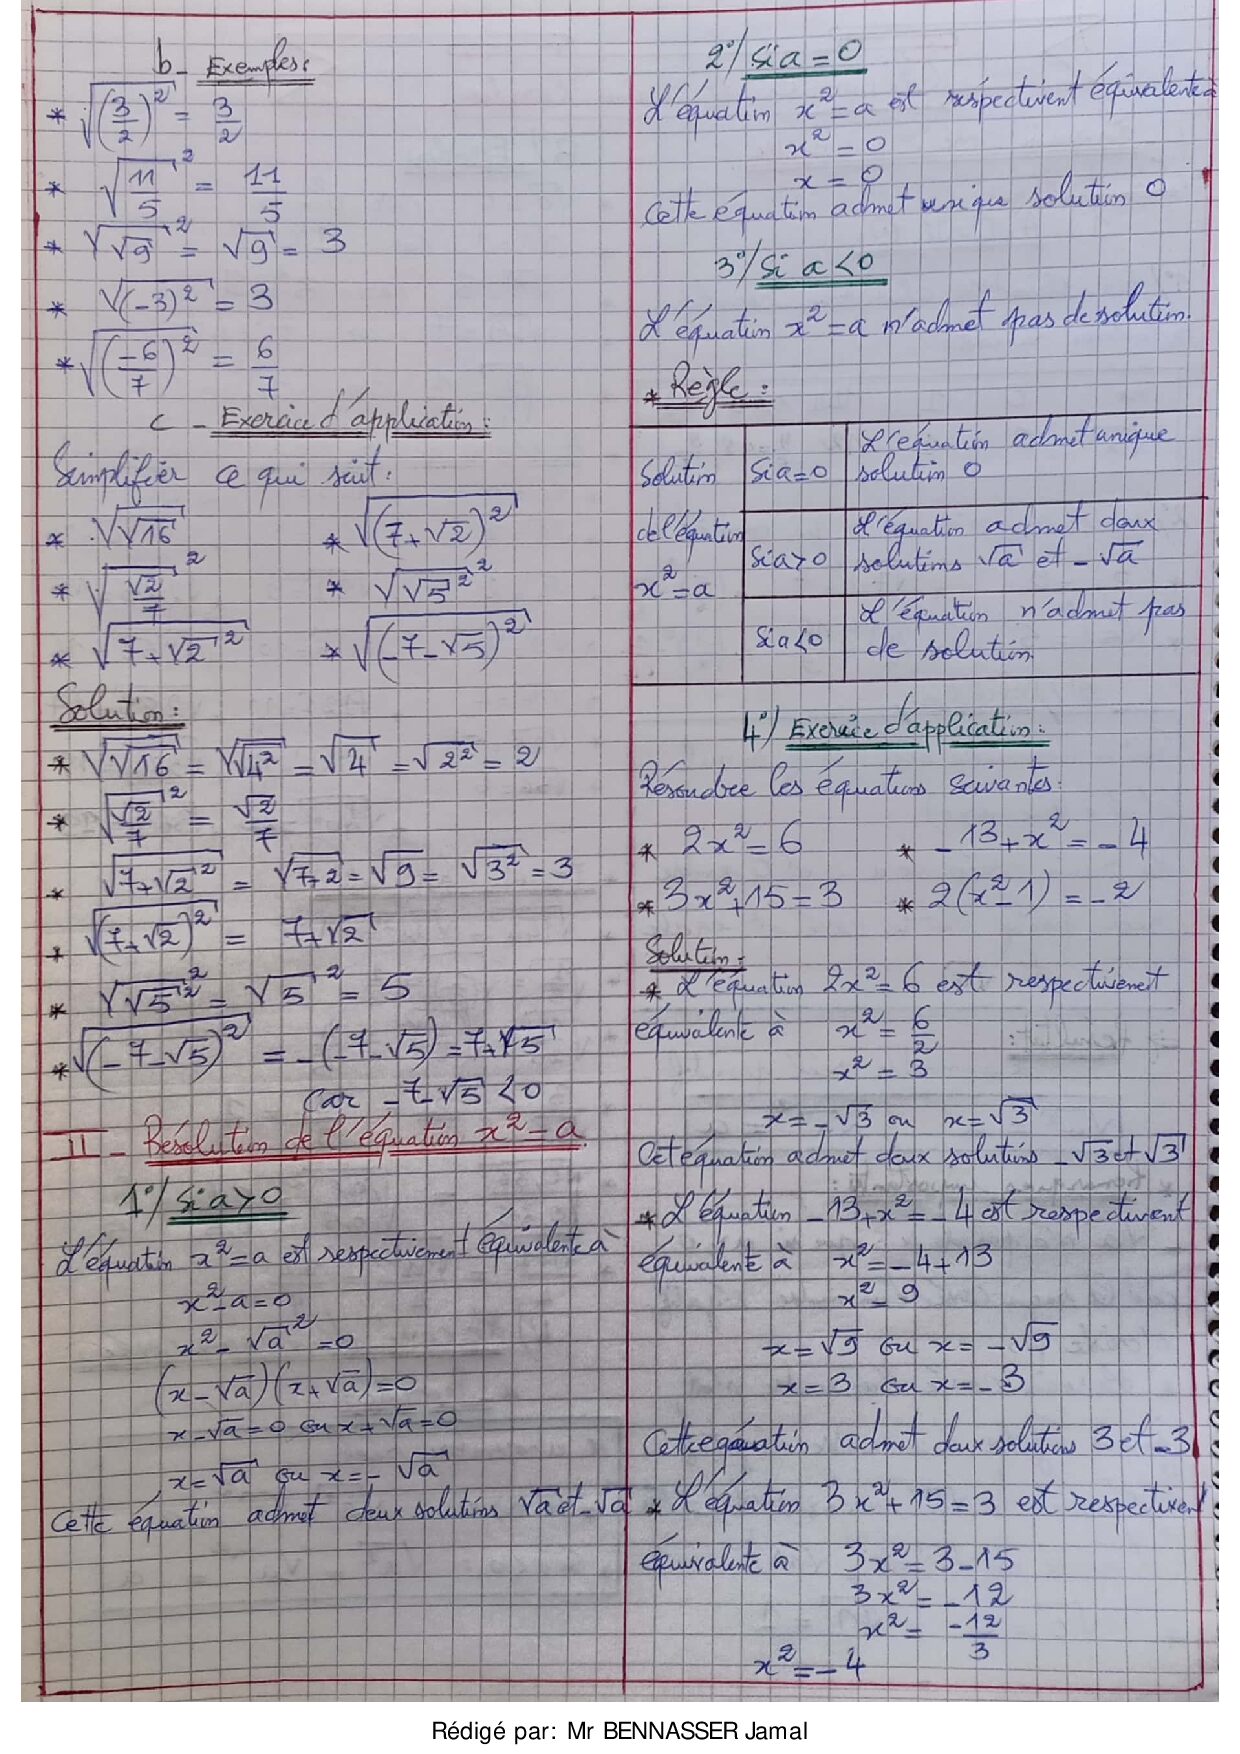 b- Exemples:
* √(3/2)² = 3/2
* √(11/5)² = 11/5
* √(√9)² = √9 = 3
* √(-3)² = 3
* √(-6/7)² = 6/7
c - Exercice d'application:
Simplifier ce qui suit:
* √√16 * √(7+√2)²
* √(√2/7)² * √(√5²)²
* √(7+√2²) * √(-7-√5)²
Solution:
* √√16 = √√4² = √4 = √2² = 2
* √(√2/7)² = √2/7
* √(7+√2²) = √(7+2) = √9 = √3² = 3
* √(7+√2)² = 7+√2
* √(√5²)² = √5² = 5
* √(-7-√5)² = -(-7-√5) = 7+√5
car -7-√5 < 0
II - Résolution de l'équation x² = a
1°/ Si a > 0
L'équation x² = a est respectivement équivalente à
x² - a = 0
x² - √a² = 0
(x - √a)(x + √a) = 0
x - √a = 0 ou x + √a = 0
x = √a ou x = -√a
Cette équation admet deux solutions √a et -√a
2°/ Si a = 0
L'équation x² = a est respectivent équivalente à
x² = 0
x = 0
Cette équation admet unique solution 0
3°/ Si a < 0
L'équation x² = a n'admet pas de solution.
* Règle:
Solution de l'équation x² = a
Si a = 0 L'équation admet unique solution 0
Si a > 0 L'équation admet deux solutions √a et -√a
Si a < 0 L'équation n'admet pas de solution
4°/ Exercice d'application:
Résoudre les équations suivantes:
* 2x² = 6 * -13 + x² = -4
* 3x² + 15 = 3 * 2(x² - 1) = -2
Solution:
* L'équation 2x² = 6 est respectivemet
équivalente à x² = 6/2
x² = 3
x = -√3 ou x = √3
Cet équation admet deux solutions -√3 et √3
* L'équation -13 + x² = -4 est respectivent
équivalente à x² = -4 + 13
x² = 9
x = √9 ou x = -√9
x = 3 ou x = -3
Cette equation admet deux solutions 3 et -3
* L'équation 3x² + 15 = 3 est respectivent
équivalente à 3x² = 3 - 15
3x² = -12
x² = -12/3
x² = -4
Rédigé par: Mr BENNASSER Jamal